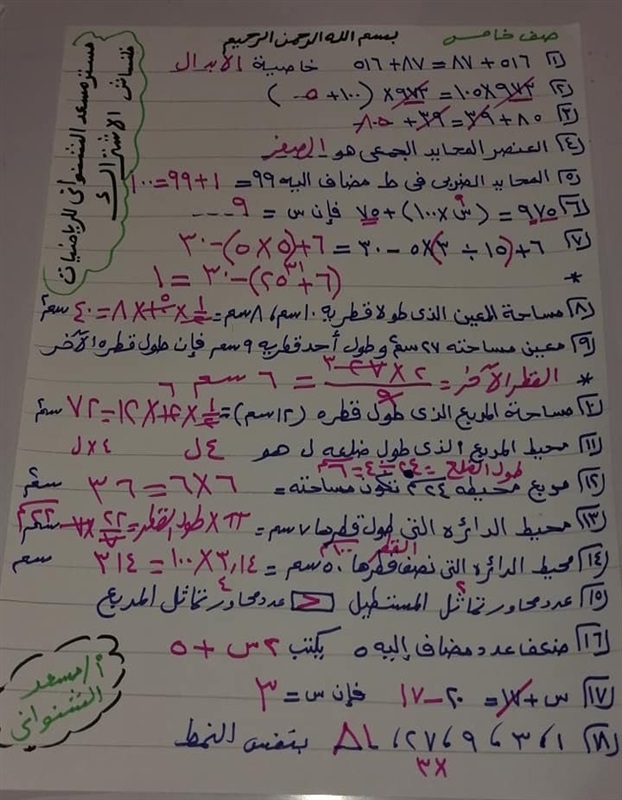 صف خامس
بسم الله الرحمن الرحيم
مستر مسعد الششنوانى للرياضيات
١) ٥١٦ + ٨٧ = ٨٧ + ٥١٦ خاصية الابدال
٢) ٩٧٣ × ١٠٥ = ٩٧٣ × (١٠٠ + ٥)
٣) ٨٠ + ٣٩ = ٣٩ + ٨٠
٤) العنصر المحايد الجمعى هو الصفر
٥) المحايد الضربى فى ط مضاف اليه ٩٩ = ١ + ٩٩ = ١٠٠
٦) ٩٧٥ = (س × ١٠٠) + ٧٥ فإن س = ٩
٧) ٦ + (١٥ ÷ ٣) × ٥ - ٣٠ = ٦ + (٥ × ٥) - ٣٠
* (٦ + ٢٥) - ٣٠ = ١
٨) مساحة المعين الذى طولا قطريه ١٠سم، ٨سم = ١/٢ × ١٠ × ٨ = ٤٠ سم٢
٩) معين مساحته ٢٧سم٢ وطول أحد قطريه ٩سم فإن طول قطره الآخر
* القطر الآخر = ٢ × ٢٧ / ٩ = ٦ سم
١٠) مساحة المربع الذى طول قطره (١٢سم) = ١/٢ × ١٢ × ١٢ = ٧٢ سم٢
١١) محيط المربع الذى طول ضلعه ل هو ٤ ل ل × ٤
طول الضلع = ٢٤ ÷ ٤ = ٦
١٢) مربع محيطه ٢٤ تكون مساحته = ٦ × ٦ = ٣٦ سم٢
١٣) محيط الدائرة التى طول قطرها ٧سم = π × طول القطر = ٢٢/٧ × ٧ = ٢٢ سم
القطر ١٠٠
١٤) محيط الدائرة التى نصف قطرها ٥٠سم = ٣,١٤ × ١٠٠ = ٣١٤ سم
١٥) عدد محاور تماثل المستطيل ٢ > عدد محاور تماثل المربع ٤
١٦) ضعف عدد مضاف إليه ٥ يكتب ٢س + ٥
١٧) س + ١٧ = ٢٠ - ١٧ فإن س = ٣
١٨) ١، ٣، ٩، ٢٧، ٨١ بنفس النمط
×٣
أ/ مسعد
الششنوانى